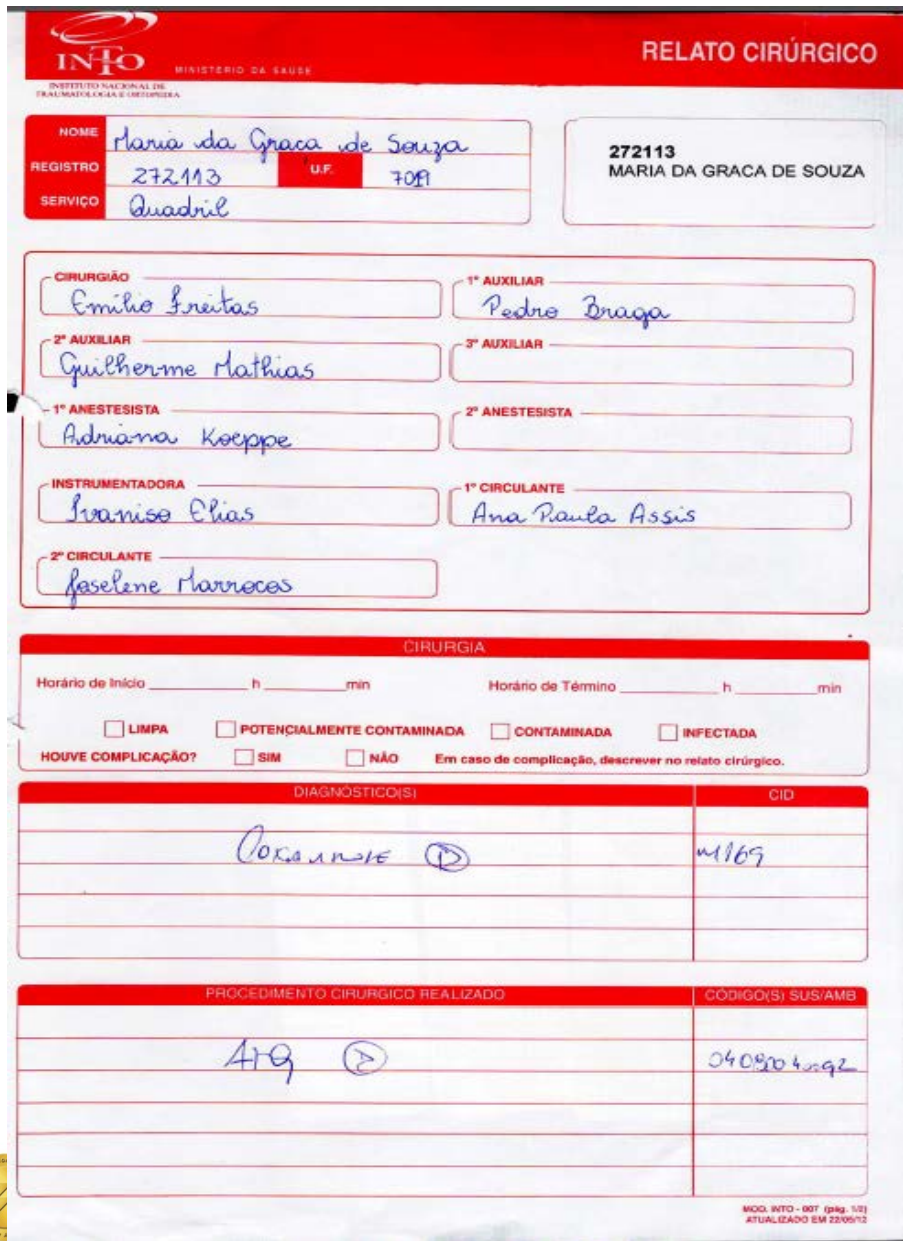 INTO
MINISTERIO DA SAUDE
RELATO CIRÚRGICO
INSTITUTO NACIONAL DE
TRAUMATOLOGIA E ORTOPEDIA
NOME Maria da Graca de Souza
REGISTRO 272113 U.F.
SERVIÇO Quadril
272113
MARIA DA GRACA DE SOUZA
CIRURGIÃO
Emílio Freitas
1º AUXILIAR
Pedro Braga
2º AUXILIAR
Guilherme Mathias
3º AUXILIAR
1º ANESTESISTA
Adriana Koeppe
2º ANESTESISTA
INSTRUMENTADORA
Ivanise Elias
1º CIRCULANTE
Ana Paula Assis
2º CIRCULANTE
Joselene Marrocos
CIRURGIA
Horário de Início ___ h ___ min Horário de Término ___ h ___ min
LIMPA POTENCIALMENTE CONTAMINADA CONTAMINADA INFECTADA
HOUVE COMPLICAÇÃO? SIM NÃO Em caso de complicação, descrever no relato cirúrgico.
DIAGNÓSTICO(S) CID
D M169
PROCEDIMENTO CIRURGICO REALIZADO CÓDIGO(S) SUS/AMB
ATQ D
MOD. INTO - 007 (pág. 1/2)
ATUALIZADO EM 22/05/12